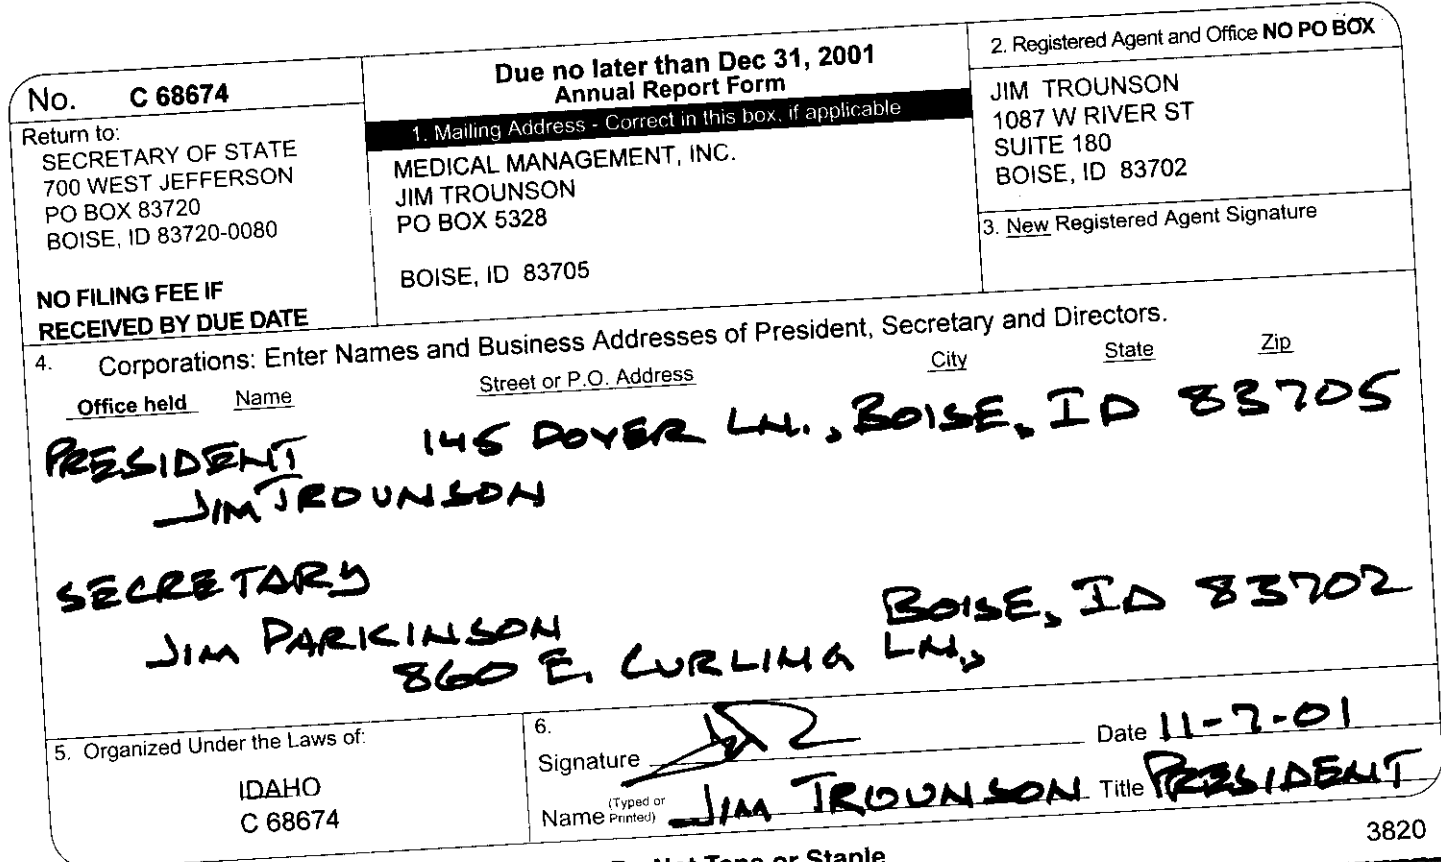 No. C 68674
Return to:
SECRETARY OF STATE
700 WEST JEFFERSON
PO BOX 83720
BOISE, ID 83720-0080
NO FILING FEE IF
RECEIVED BY DUE DATE
Due no later than Dec 31, 2001
Annual Report Form
1. Mailing Address - Correct in this box, if applicable
MEDICAL MANAGEMENT, INC.
JIM TROUNSON
PO BOX 5328
BOISE, ID 83705
2. Registered Agent and Office NO PO BOX
JIM TROUNSON
1087 W RIVER ST
SUITE 180
BOISE, ID 83702
3. New Registered Agent Signature
4. Corporations: Enter Names and Business Addresses of President, Secretary and Directors.
Office held Name Street or P.O. Address City State Zip
PRESIDENT 145 DOVER LN., BOISE, ID 83705
JIM TROUNSON
SECRETARY
JIM PARKINSON BOISE, ID 83702
860 E. CURLING LN.,
5. Organized Under the Laws of:
IDAHO
C 68674
6.
Signature Date 11-7-01
Name (Typed or Printed) JIM TROUNSON Title PRESIDENT
3820
Not Tape or Staple